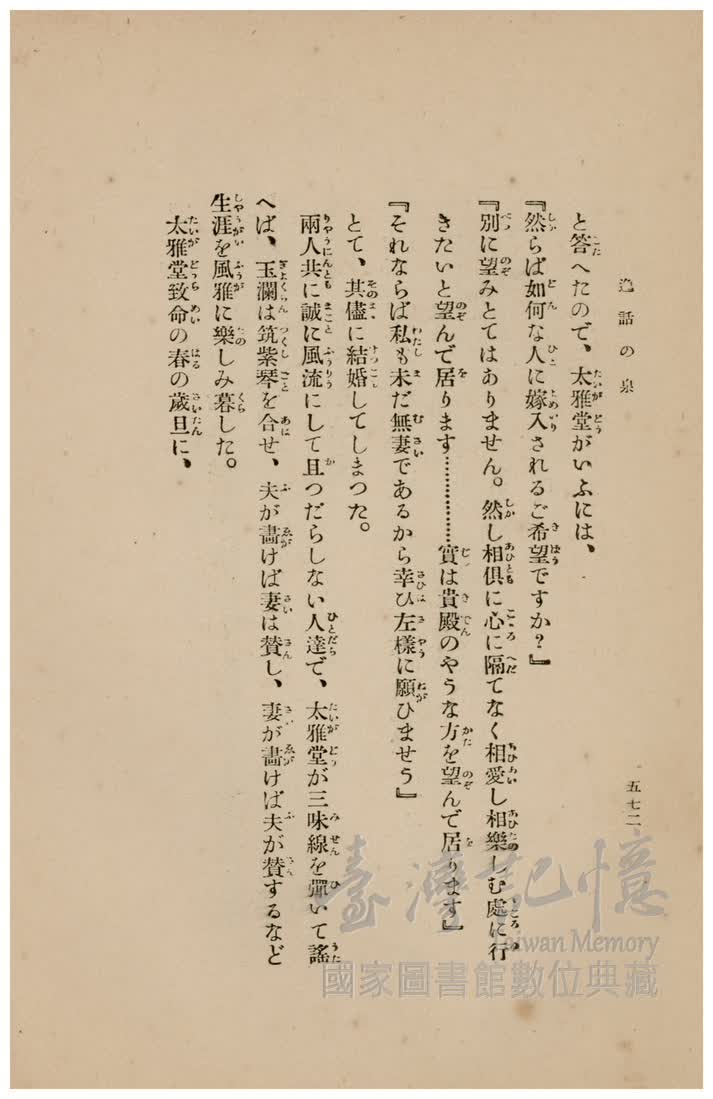 逸話の泉
五七二
と答へたので、太雅堂がいふには、
『然らば如何な人に嫁入されるご希望ですか？』
『別に望みとてはありません。然し相倶に心に隔てなく相愛し相樂しむ處に行
きたいと望んで居ります……………實は貴殿のやうな方を望んで居ります』
『それならば私も未だ無妻であるから幸ひ左樣に願ひませう』
とて、其儘に結婚してしまつた。
兩人共に誠に風流にして且つだらしない人達で、太雅堂が三味線を彈いて謠
へば、玉瀾は筑紫琴を合せ、夫が畵けば妻は賛し、妻が畵けば夫が賛するなど
生涯を風雅に樂しみ暮した。
太雅堂致命の春の歲旦に、
臺灣記憶
Taiwan Memory
國家圖書館數位典藏